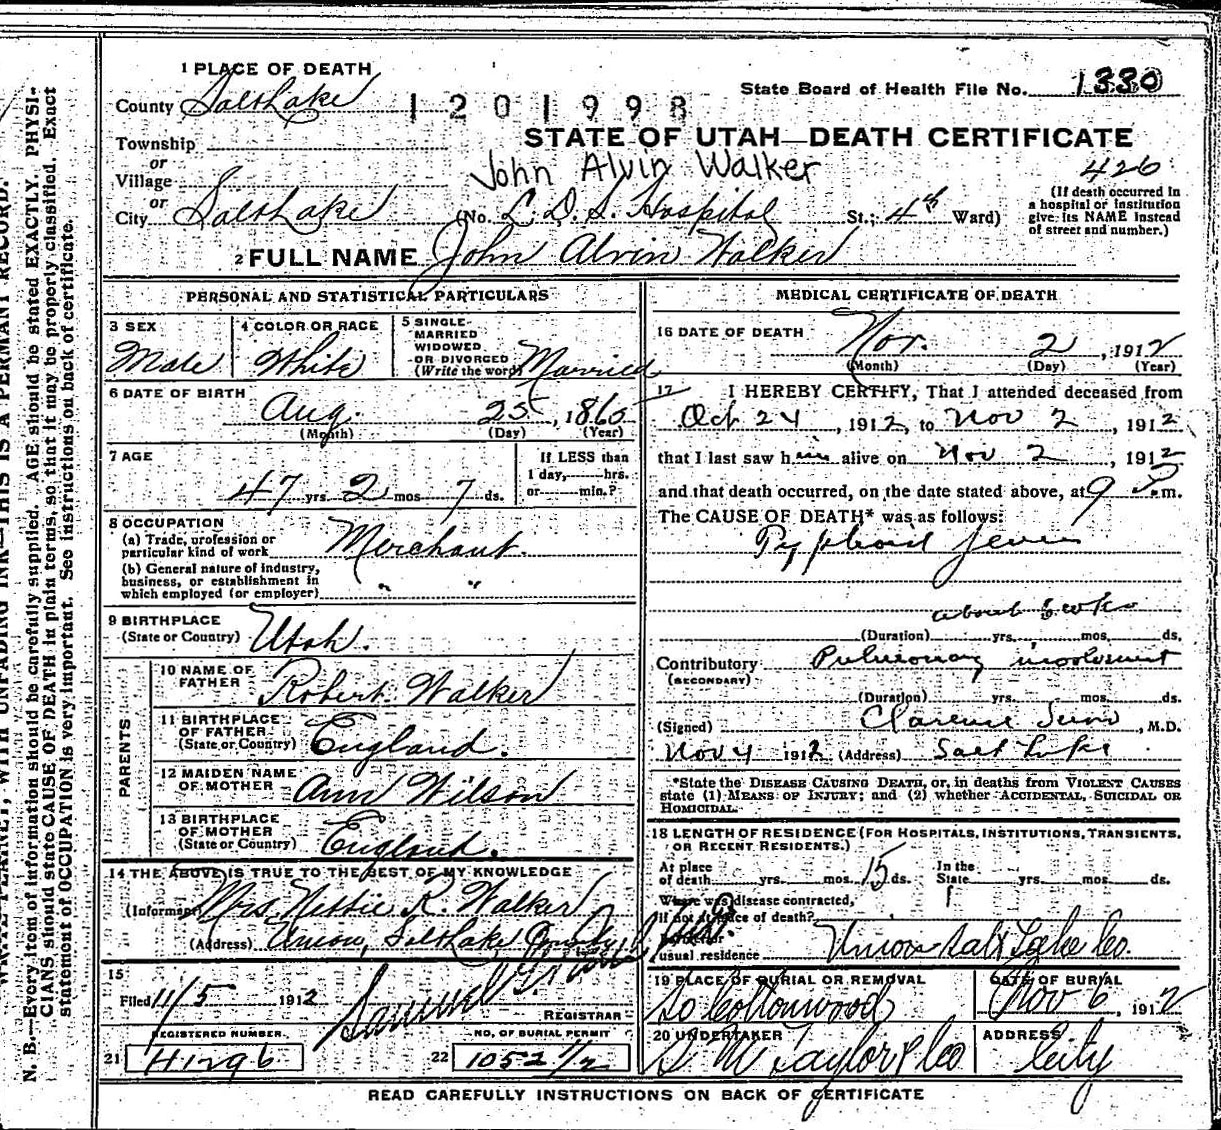 WRITE PLAINLY, WITH UNFADING INK—THIS IS A PERMANT RECORD.
N. B.—Every item of information should be carefully supplied. AGE should be stated EXACTLY. PHYSI-
CIANS should state CAUSE OF DEATH in plain terms, so that it may be properly classified. Exact
statement of OCCUPATION is very important. See instructions on back of certificate.
1 PLACE OF DEATH
County Salt Lake 1201998
State Board of Health File No. 1330
STATE OF UTAH—DEATH CERTIFICATE
Township
or
Village
John Alvin Walker
426
or
City Salt Lake (No. L. D. S. Hospital St.; 4th Ward)
(If death occurred in
a hospital or institution
give its NAME instead
of street and number.)
2 FULL NAME John Alvin Walker
PERSONAL AND STATISTICAL PARTICULARS
3 SEX
Male
4 COLOR OR RACE
White
5 SINGLE
MARRIED
WIDOWED
OR DIVORCED
(Write the word) Married
6 DATE OF BIRTH
Aug. 25, 1865
(Month) (Day) (Year)
7 AGE
47 yrs. 2 mos. 7 ds.
If LESS than
1 day, hrs.
or min.?
8 OCCUPATION
(a) Trade, profession or
particular kind of work Merchant.
(b) General nature of industry,
business, or establishment in
which employed (or employer) " "
9 BIRTHPLACE
(State or Country) Utah.
PARENTS
10 NAME OF
FATHER Robert Walker
11 BIRTHPLACE
OF FATHER
(State or Country) England.
12 MAIDEN NAME
OF MOTHER Ann Wilson
13 BIRTHPLACE
OF MOTHER
(State or Country) England.
14 THE ABOVE IS TRUE TO THE BEST OF MY KNOWLEDGE
(Informant) Mrs. Nettie R. Walker
(Address) Union, Salt Lake County
15
Filed 11/5 1912
REGISTRAR
REGISTERED NUMBER.
21 H1296
NO. OF BURIAL PERMIT
22 1052 1/2
MEDICAL CERTIFICATE OF DEATH
16 DATE OF DEATH
Nov. 2, 1912
(Month) (Day) (Year)
17 I HEREBY CERTIFY, That I attended deceased from
Oct 24, 1912, to Nov 2, 1912
that I last saw him alive on Nov 2, 1912
and that death occurred, on the date stated above, at 9 P.m.
The CAUSE OF DEATH* was as follows:
Typhoid fever
about wks
(Duration) yrs. mos. ds.
Contributory Pulmonary involvment
(SECONDARY)
(Duration) yrs. mos. ds.
(Signed) Clarence M.D.
Nov 4 1912 (Address) Salt Lake
*State the DISEASE CAUSING DEATH, or, in deaths from VIOLENT CAUSES
state (1) MEANS OF INJURY; and (2) whether ACCIDENTAL, SUICIDAL OR
HOMICIDAL.
18 LENGTH OF RESIDENCE (FOR HOSPITALS, INSTITUTIONS, TRANSIENTS,
OR RECENT RESIDENTS.)
At place
of death yrs. mos. 15 ds.
In the
State yrs. mos. ds.
Where was disease contracted,
if not at place of death?
usual residence Union Salt Lake Co.
19 PLACE OF BURIAL OR REMOVAL
So Cottonwood
DATE OF BURIAL
Nov 6, 1912
20 UNDERTAKER
S M Taylor & Co
ADDRESS
City
READ CAREFULLY INSTRUCTIONS ON BACK OF CERTIFICATE